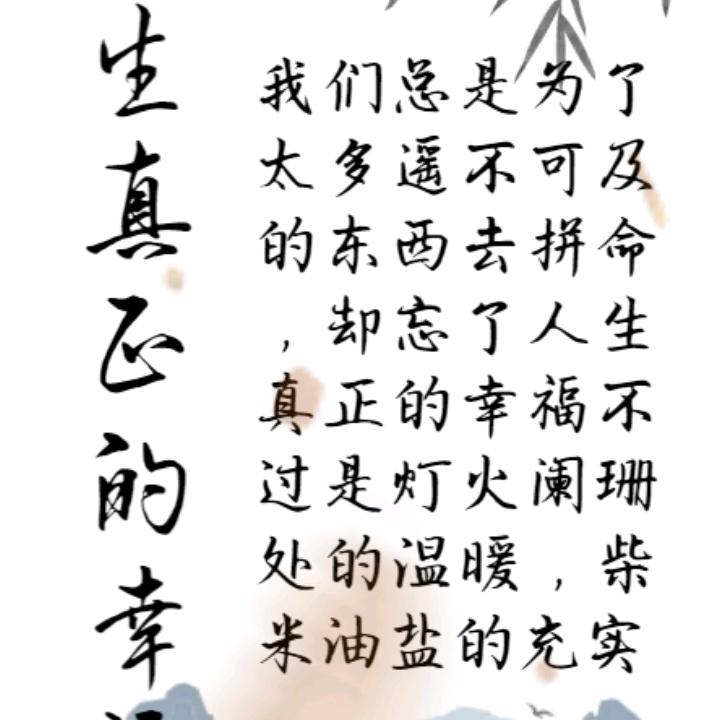 生真正的幸
我们总是为了
太多遥不可及
的东西去拼命
，却忘了人生
真正的幸福不
过是灯火阑珊
处的温暖，柴
米油盐的充实